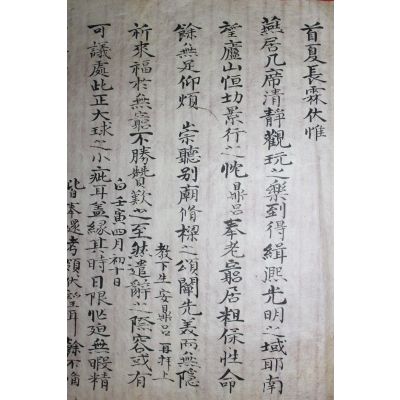 首夏長霖伏惟
燕居几席清靜觀玩之樂到得緝熙光明之域耶南
望廬山恒切景行之忱鼎呂奉老窮居粗保性命
餘無足仰煩 崇聽別廟脩樑之頌闡先美而無隱
祈來福於無窮不勝贊歎之至然遣辭之際容或有
可議處此正大球之小疵耳蓋緣其時日限忙迫無暇精
皆奉還考領伏望耳 餘不備
白壬寅四月初十日
教下生安鼎呂再拜上